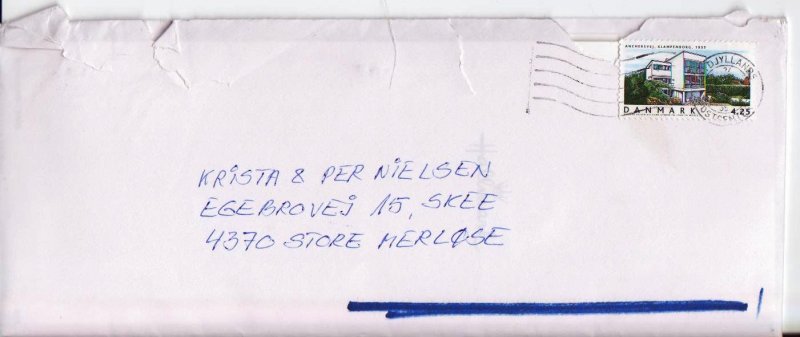 ANCHERSVEJ, KLAMPENBORG, 1955
DANMARK 4.25
KRISTA & PER NIELSEN
EGEBROVEJ 15, SKEE
4370 STORE MERLØSE